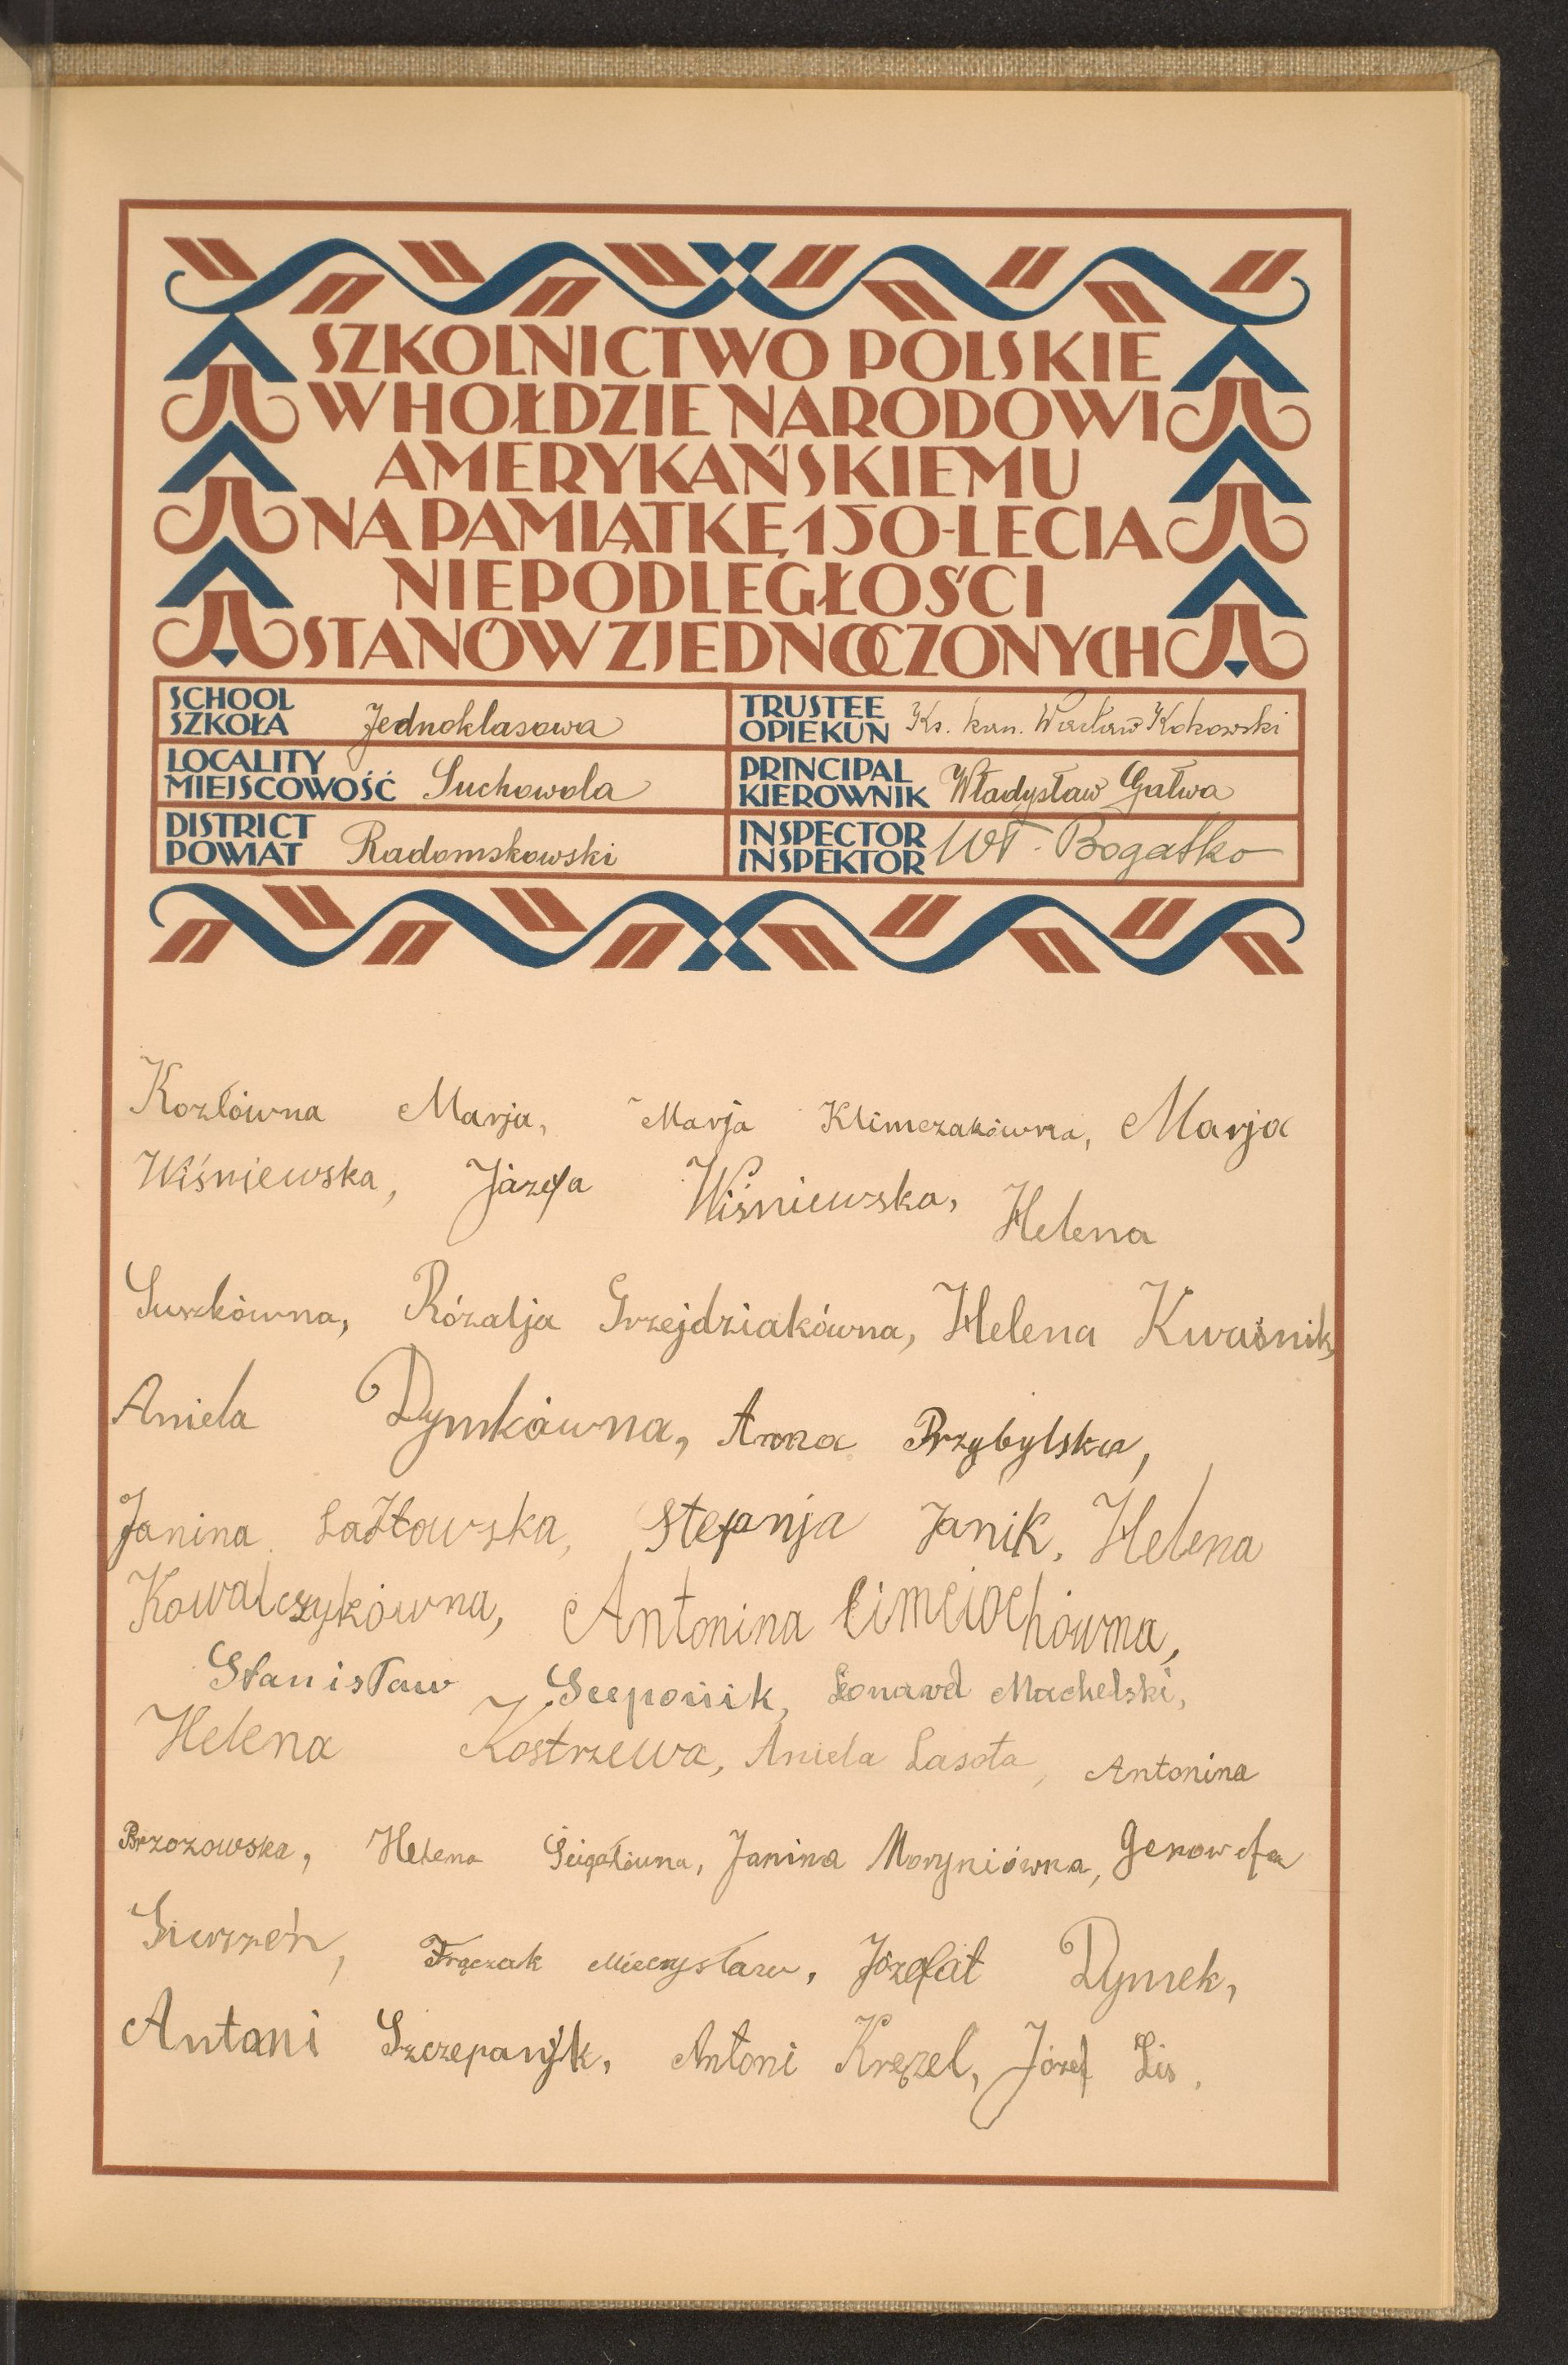 SZKOLNICTWO POLSKIE
W HOŁDZIE NARODOWI
AMERYKAŃSKIEMU
NA PAMIĄTKĘ 150-LECIA
NIEPODLEGŁOŚCI
STANÓW ZJEDNOCZONYCH
SCHOOL
SZKOŁA Jednoklasowa
TRUSTEE
OPIEKUN Ks. kan. Wacław Kokowski
LOCALITY
MIEJSCOWOŚĆ Suchowola
PRINCIPAL
KIEROWNIK Władysław Gałwa
DISTRICT
POWIAT Radomskowski
INSPECTOR
INSPEKTOR Wł. Bogatko
Kozłówna Marja, Marja Klimczakówna, Marja
Wiśniewska, Józefa Wiśniewska, Helena
Suszkówna, Rózalja Grzejdziakówna, Helena Kwaśnik,
Aniela Dymkówna, Anna Przybylska,
Janina Stefanja Janik, Helena
Kowalczykówna, Antonina Cimciochówna,
Stanisław Leonard Machelski,
Helena Kostrzewa, Aniela Lasota, Antonina
Brzozowska, Helena Janina Moryniówna, Genowefa
Frączak Mieczysław, Józefat Dymek,
Antoni Szczepanik, Antoni Kręzel, Józef Lis,